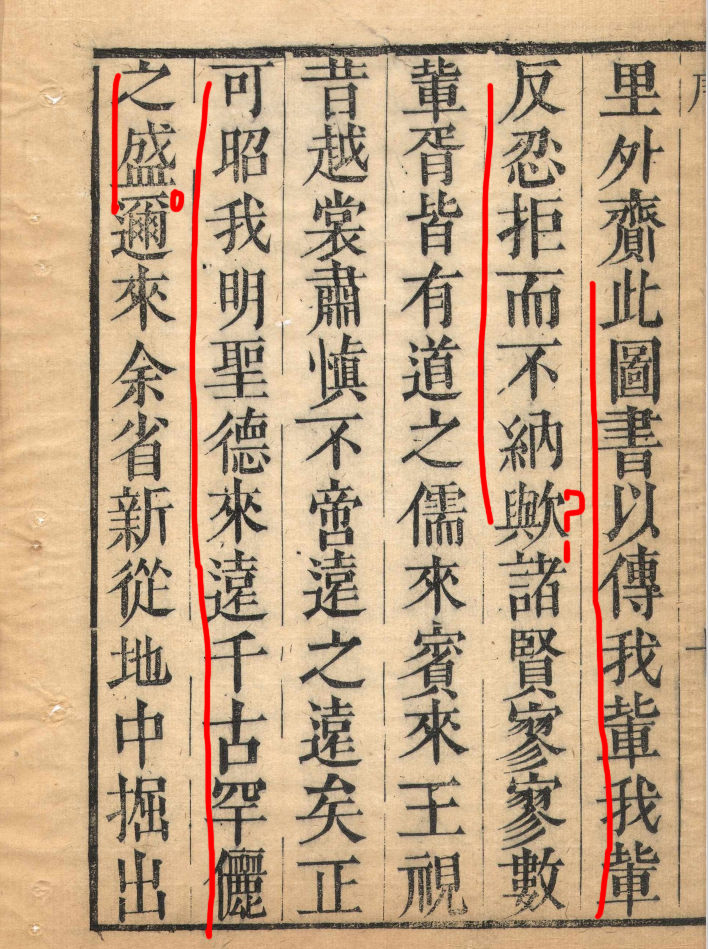 里外齎此圖書以傳我軰我軰
反忍拒而不納歟?諸賢寥寥數
軰胥皆有道之儒來賓來王視
昔越裳肅慎不啻遠之遠矣正
可昭我明聖德來遠千古罕儷
之盛。邇來余省新從地中掘出